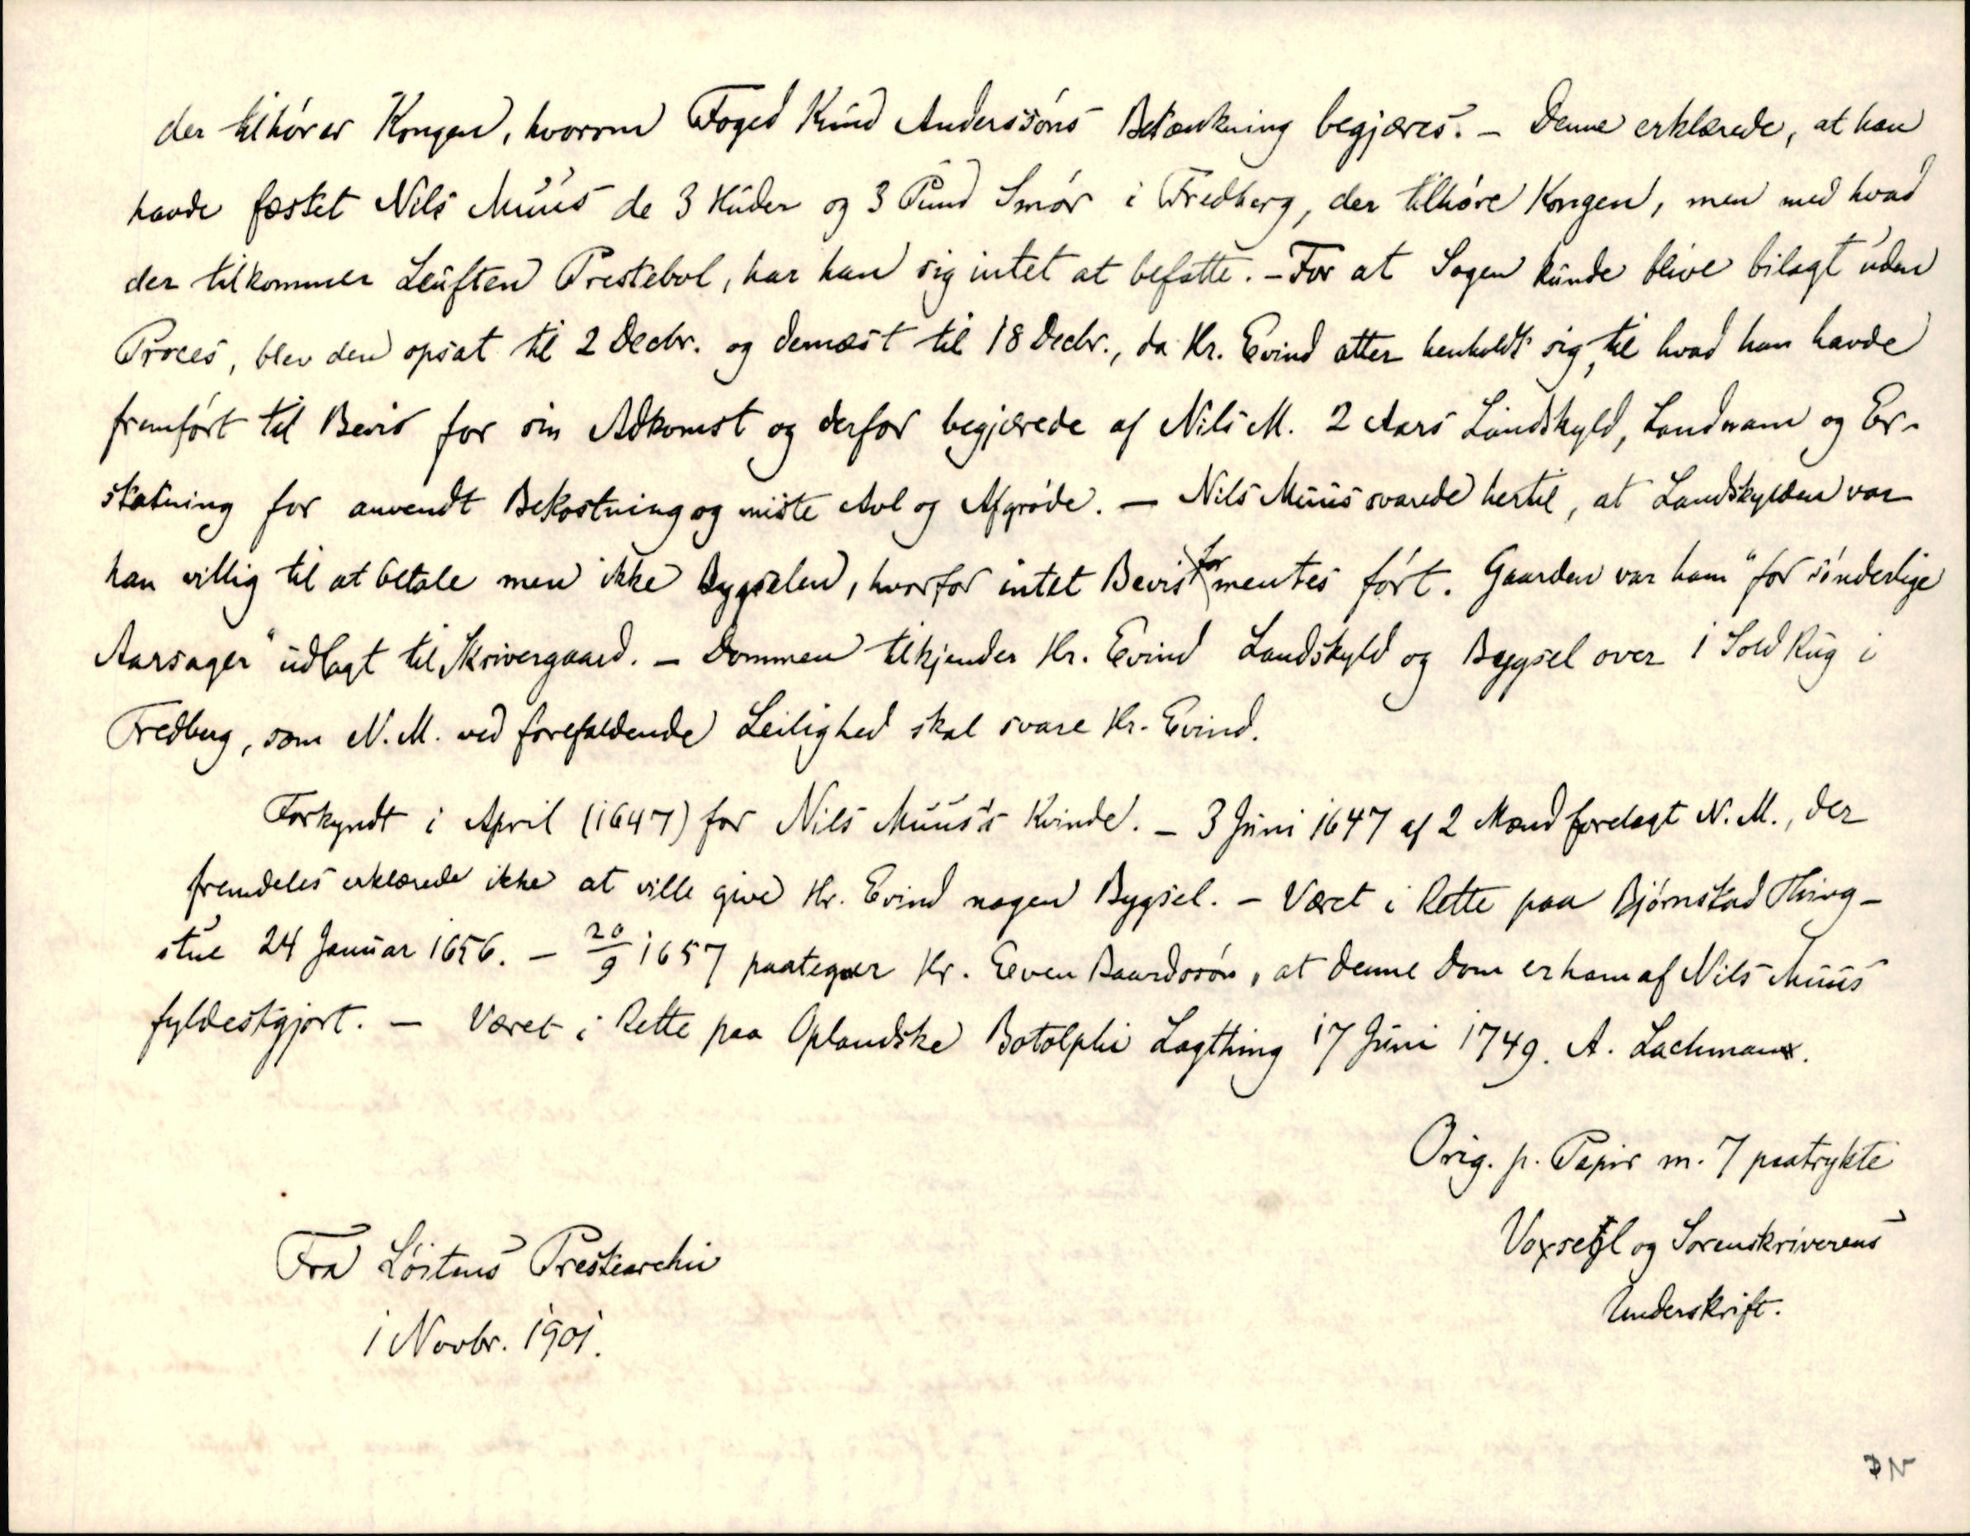 der tilhórer Kongen, hvorom Foged Knud Anderssóns Betænkning begjæres. – Denne erklærede, at han
havde fæstet Nils Muus de 3 Huder og 3 Pund Smór i Fredberg, der tilhóre Kongen, men med hvad
der tilkommer Leuften Prestebol, har han sig intet at befatte. – For at Sagen kunde blive bilagt uden
Proces, blev den opsat til 2 Decbr. og dernæst til 18 Decbr., da Hr. Evind atter henholdt sig til hvad han havde
fremfórt til Bevis for sin Adkomst og derfor begjærede af Nils M. 2 Aars Landskyld, Landnam og Er-
statning for anvendt Bekostning og miste Avl og Afgróde. – Nils Muus svarede hertil, at Landskylden var
han villig til at betale men ikke Bygselen, hvorfor intet Bevis for mentes fórt. Gaarden var ham "for sónderlige
Aarsager" udlagt til Skrivergaard. – Dommen tilkjender Hr. Evind Landskyld og Bygsel over 1 Sold Rug i
Fredberg, som N. M. ved forefaldende Leilighed skal svare Hr. Evind.
Forkyndt i April (1647) for Nils Muus's Kvinde. – 3 Juni 1647 af 2 Mænd forelagt N. M., der
fremdeles erklærede ikke at ville give Hr. Evind nogen Bygsel. – Været i Rette paa Bjórnstad Thing-
stue 24 Januar 1656. – 20/9 1657 paategner Hr. Eeven Baardssón, at denne Dom er ham af Nils Muus
fyldestgjort. – Været i Rette paa Oplandske Botolphi Lagthing 17 Juni 1749. A. Lachman.
Orig. p. Papir m. 7 paatrykte
Voxsegl og Sorenskriverens
Underskrift.
Fra Lóitens Prestearchiv
i Novbr. 1901.